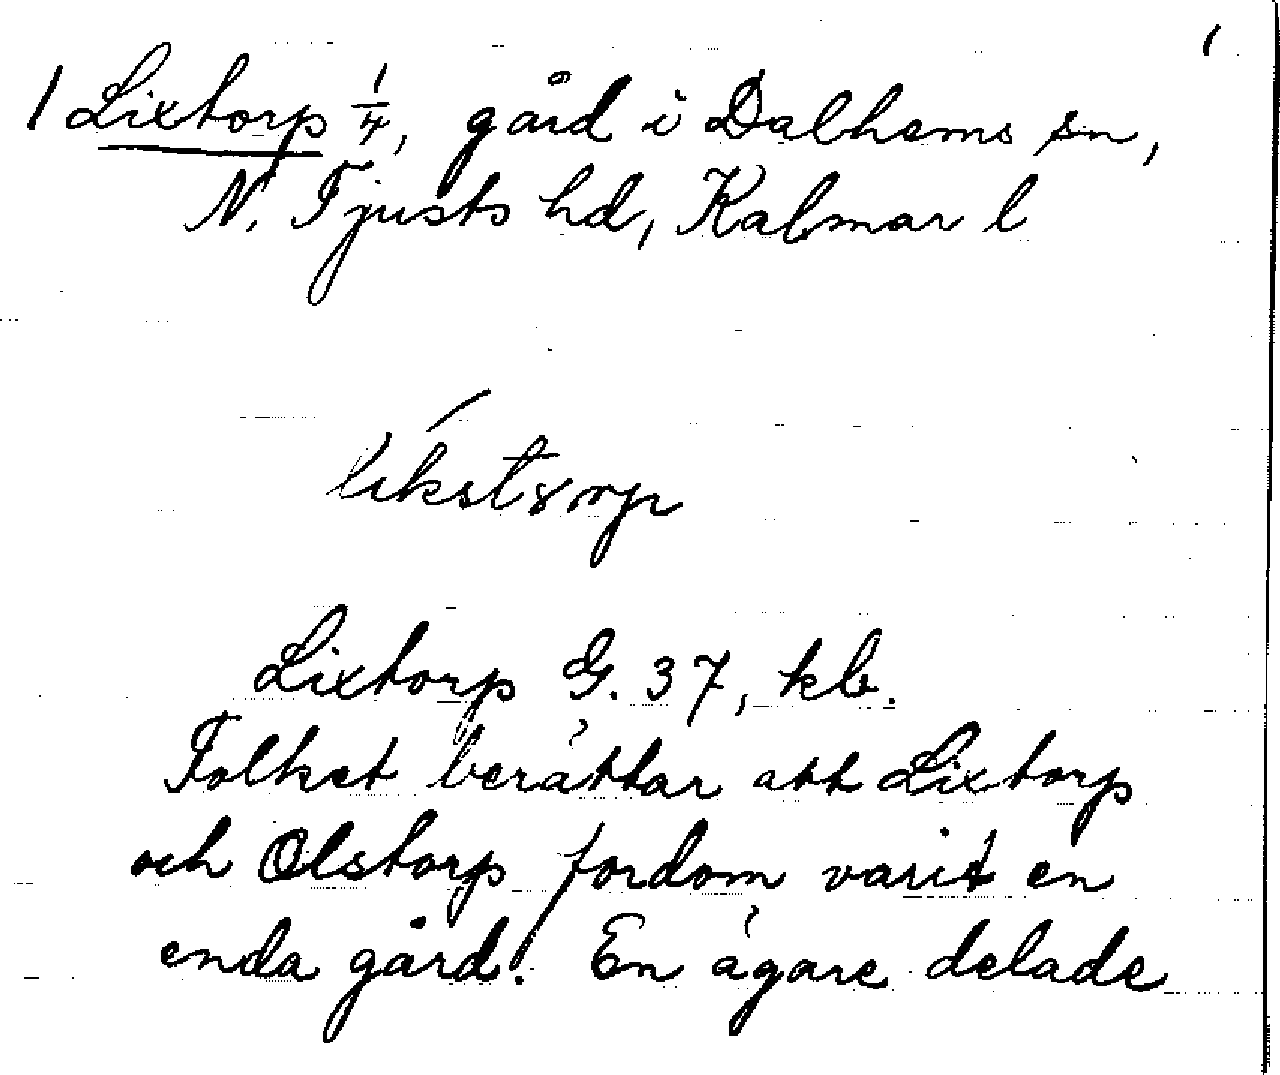 1
1 Lixtorp 1/4, gård i Dalhems sn,
N. Tjusts hd, Kalmar l
Lixtorp G. 37, kb.
Folket berättar att Lixtorp
och Olstorp fordom varit en
enda gård. En ägare delade